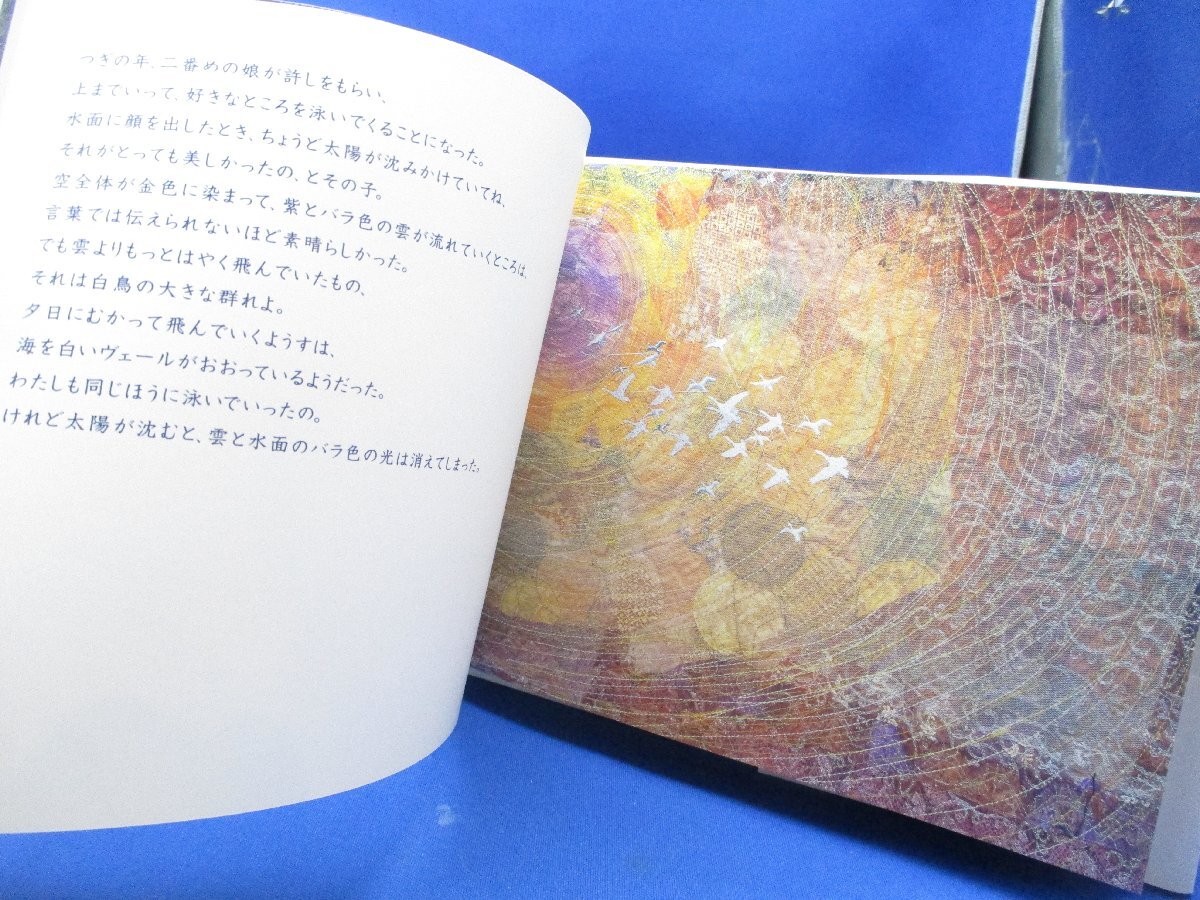 つぎの年、二番めの娘が許しをもらい、
上までいって、好きなところを泳いでくることになった。
水面に顔を出したとき、ちょうど太陽が沈みかけていてね、
それがとっても美しかったの、とその子。
空全体が金色に染まって、紫とバラ色の雲が流れていくところは、
言葉では伝えられないほど素晴らしかった。
でも雲よりもっとはやく飛んでいたもの、
それは白鳥の大きな群れよ。
夕日にむかって飛んでいくようすは、
海を白いヴェールがおおっているようだった。
わたしも同じほうに泳いでいったの。
けれど太陽が沈むと、雲と水面のバラ色の光は消えてしまった。